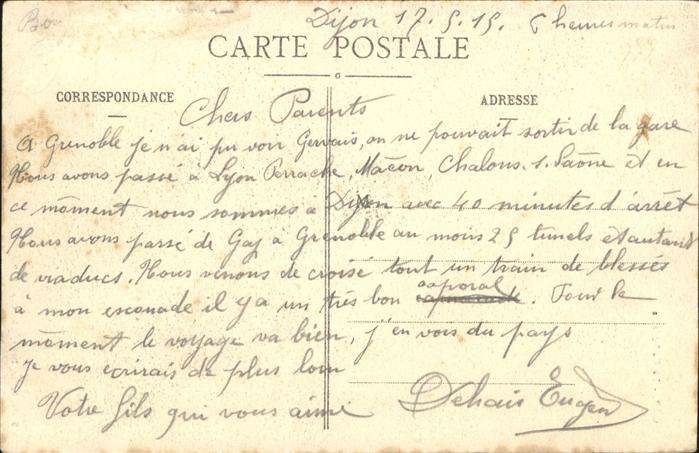 Dijon 17.5.15. 6 heures matin
CARTE POSTALE
CORRESPONDANCE
ADRESSE
Chers Parents
A Grenoble je n'ai pu voir Gervais, on ne pouvait sortir de la gare
Nous avons passé à Lyon Perrache, Mâcon, Chalons.s.Saône et en
ce môment nous sommes à Dijon avec 40 minutes d'arrêt
Nous avons passé de Gap a Grenoble au mois 25 tunels et autant
de viaducs. Nous venons de croisé tout un train de blessés
à mon escouade il y a un très bon caporal. Pour le
môment le voyage va bien, j'en vois du pays
Je vous écrirais de plus loin
Votre fils qui vous aime
Dehais Eugène